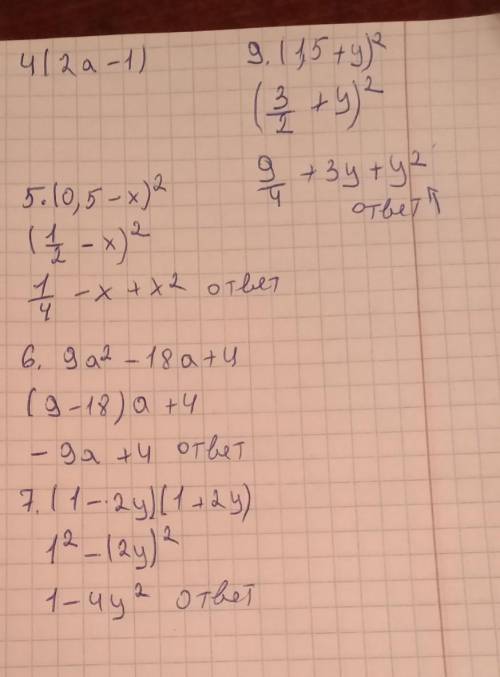 4(2a-1)
5. (0,5-x)²
(1/2 - x)²
1/4 - x + x² ответ
6. 9a² - 18a + 4
(9-18)a + 4
- 9a + 4 ответ
7. (1-2y)(1+2y)
1² - (2y)²
1 - 4y² ответ
9. (1,5+y)²
(3/2 + y)²
9/4 + 3y + y²
ответ↑